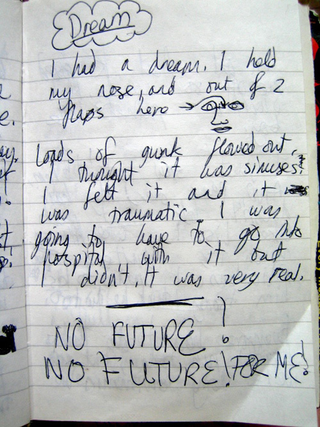 Dream
I had a dream. I held
my nose and out of 2
flaps here
Loads of gunk flowed out.
I thought it was sinuses!
I felt it and it
was traumatic. I was
going to have to go to
hospital with it but
I didn't. It was very real.
NO FUTURE!
NO FUTURE! FOR ME!